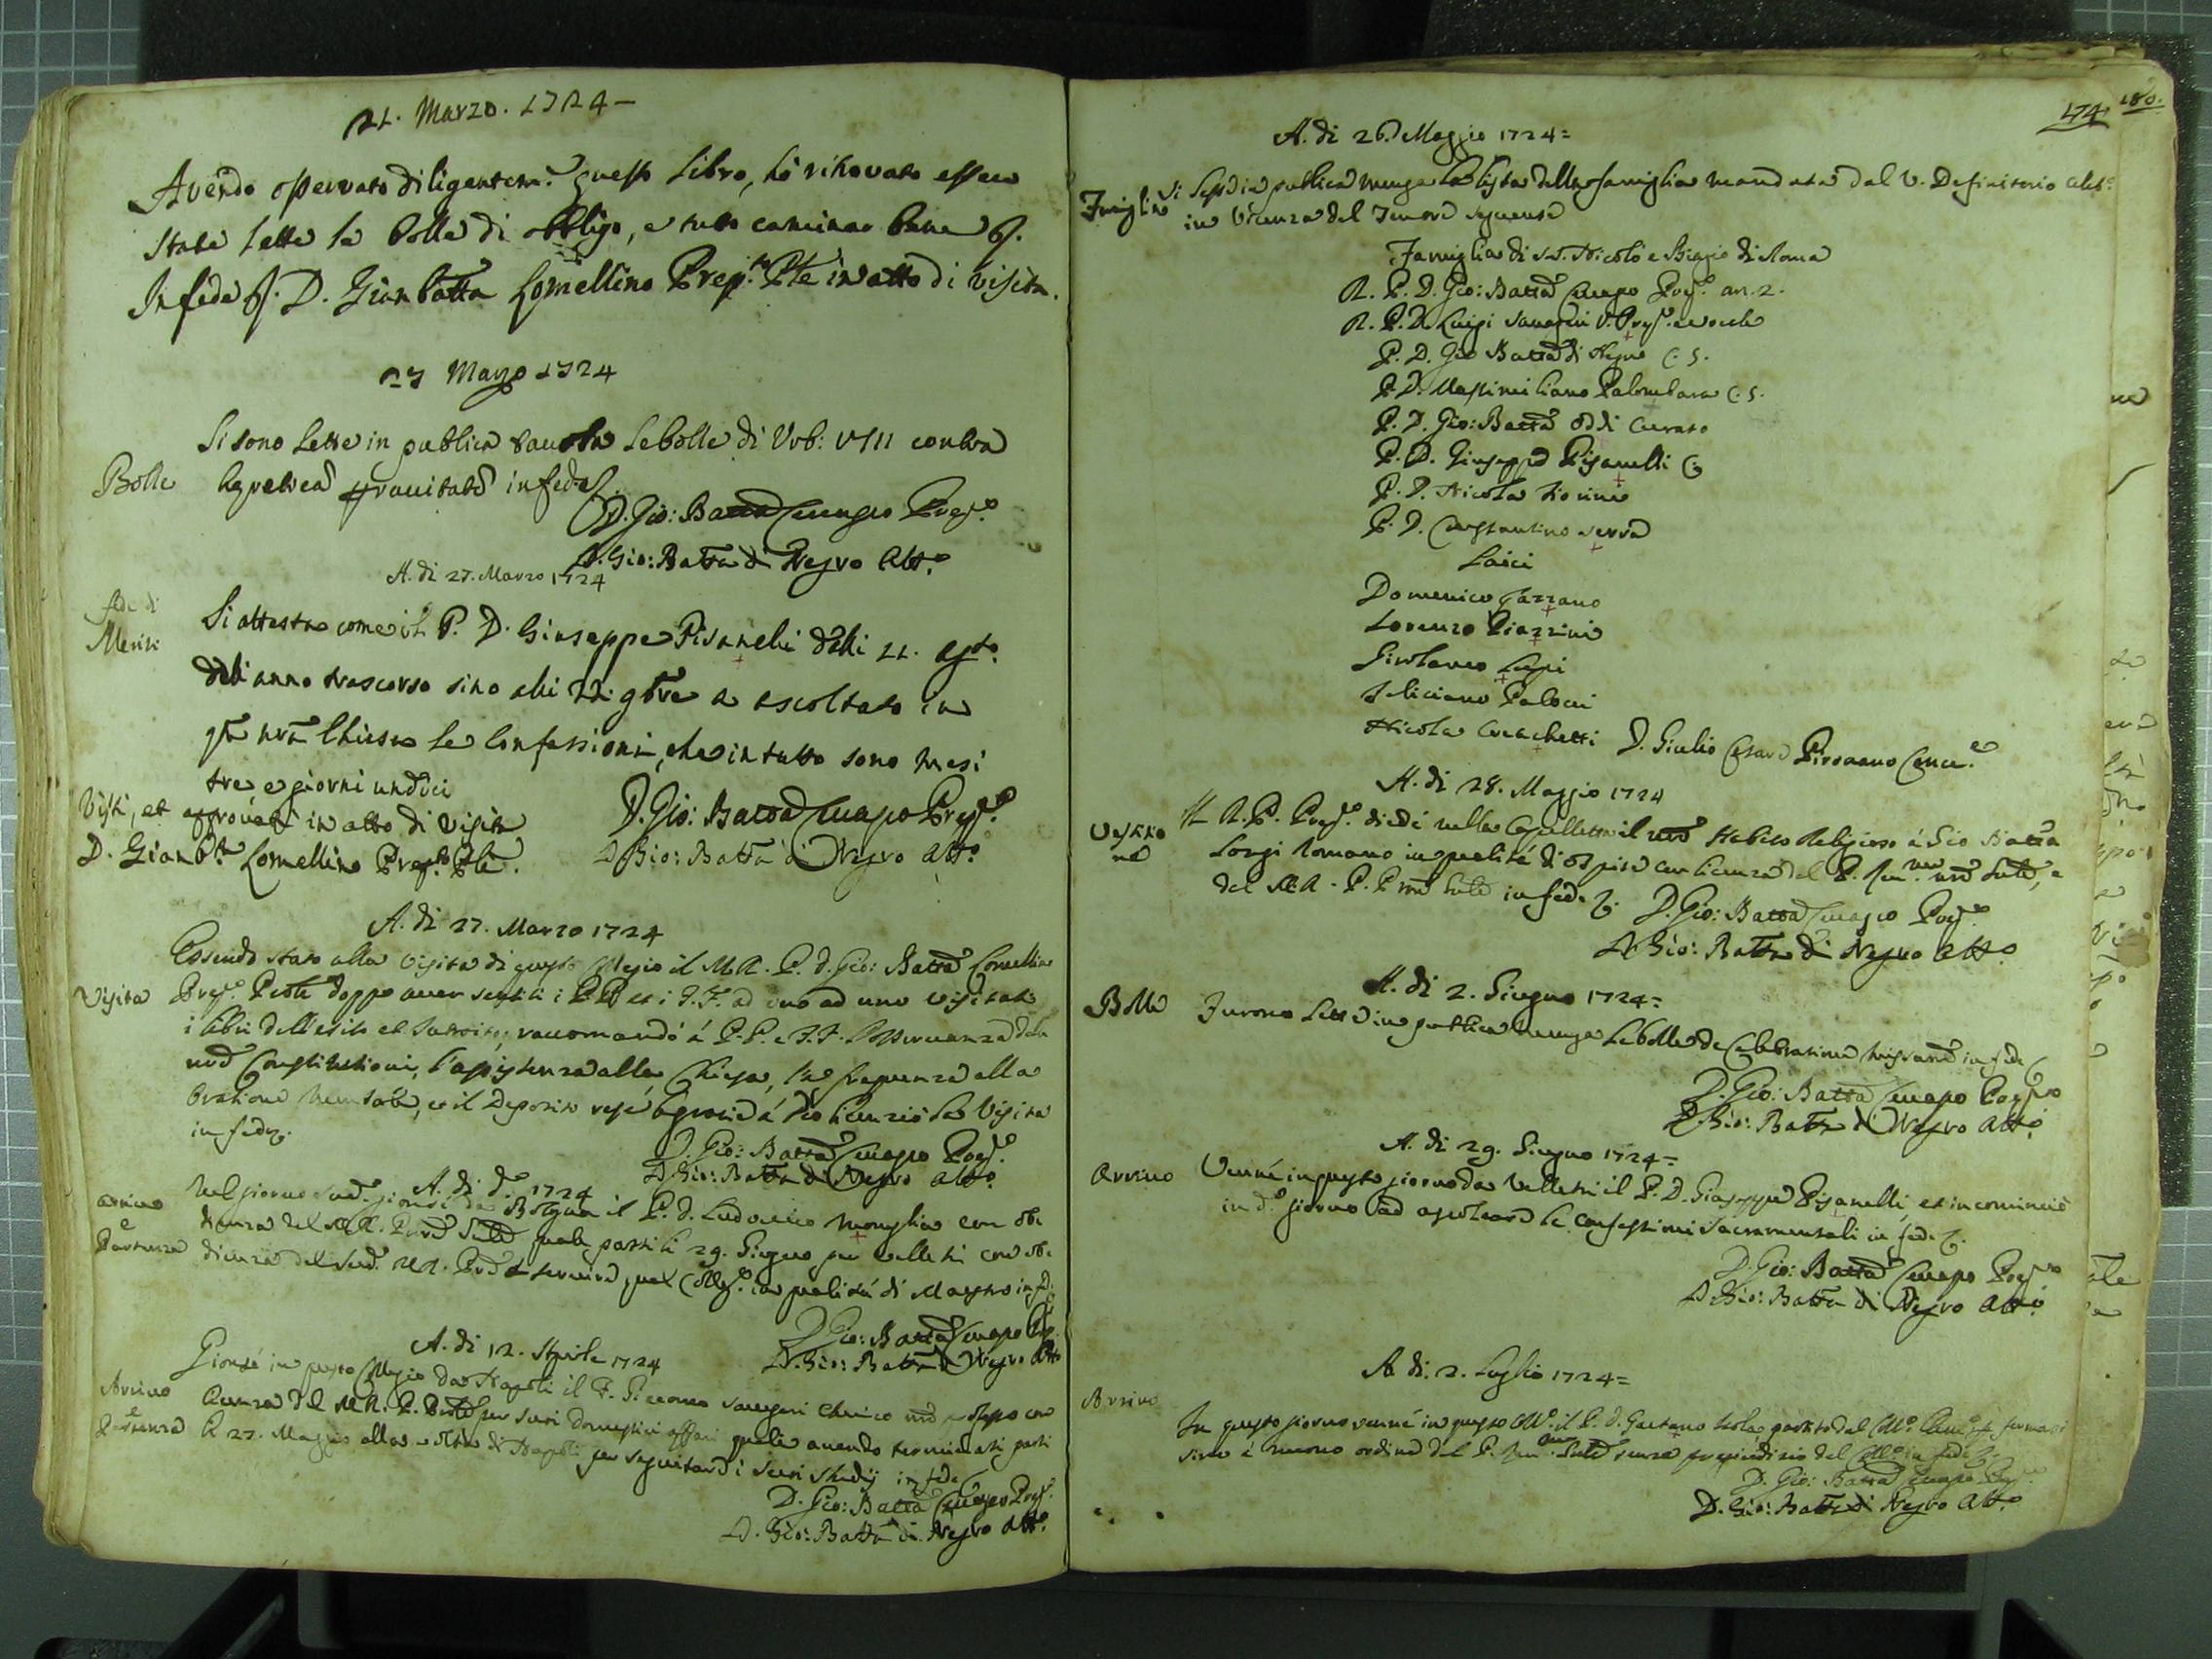 21. Marzo. 1724 —
Avendo osservato diligentem.e questo Libro, hò ritrovato essere
state lette le Bolle di obbligo, e tutto caminar bene &.
In fede &. D. Gianbatta Lomellino Prep.to Ple in atto di visita.
27 Marzo 1724
Bolle
Si sono lette in publica tauola le bolle di Vrb: VIII contra
hereticā prauitatē in fede
D. Gio: Batta Cenapo Prep.o
D. Gio: Batta di Negro Att.o
A. di 27. Marzo 1724
fede di
Meriti
Si attesta come il P. D. Giuseppe Pisanelli dalli 21. Agto.
dell anno trascorso sino alli gbre a ascoltato in
qta nra Chiesa le Confessioni, che in tutto sono mesi
tre e giorni undici
Visti, et approvati in atto di visita
D. Gianb.ta Lomellino Prep.to Ple.
D. Gio: Batta Cenapo Prep.o
D. Gio: Batta di Negro Att.o
A. di 27. Marzo 1724
Visita
Essendo stato alla visita di questo Collegio il M.R. P. D. Gio: Batta Lomellino
Prep.o Prole doppo auer sentiti i PP. et i F.F. ad uno ad uno visitati
i libri dell'esito et Introito, racomandò á P.P. e F.F. l'osseruanza delle
nrē Constitutioni, l'assistenza alla Chiesa, la frequenza alla
Oratione mentale, et il Deposito rese le gratie á Dio licenziò la Visita
in fede &.
D. Gio: Batta Cenapo Prep.o
D. Gio: Batta di Negro Att.o
A. di d.o 1724
Arrivo
e
Partenza
Nel giorno sud.o gionse da Bologna il P. D. Ludovico Moneglia con obe
dienza del M.R. P. Prole quale partì li 29. Giugno per Velletri con obe
dienza del sud. M.R. Prole a servire quel Colleg.o in qualità di Maestro in fede
D. Gio: Batta Cenapo Prep.
D. Gio: Batta di Negro Att.o
A. di 12. Aprile 1724
Arrivo
e
Partenza
Gionse in questo Collegio da Napoli il F. Giacomo Sauageri Chierico nrō professo con
licenza del M.R. P. Prole per suoi domestici affari quali auendo terminati partì
li 27. Maggio alla volta di Napoli per seguitare i suoi studij in fede
D. Gio: Batta Cenapo Prep.o
D. Gio: Batta di Negro Att.o
174 180.
A. di 26. Maggio 1724 =
Famiglia
Si lesse in publica mensa la lista della famiglia mandata dal V. Definitorio
in Vicenza del tenore seguente
Famiglia di SS. Nicolò e Biagio di Roma
R. P. D. Gio: Batta Cenapo Prep.o an. 2.
R. P. D. Luigi V. Prep.o e vocale
P. D. Gio Batta di Negro C. S.
P. D. Massimiliano Palombara C. S.
P. D. Gio: Batta Oddi Curato
P. D. Giuseppe Pisanelli C.
P. D. Nicola
P. D. Constantino Serra
Laici
Domenico Gazzano
Lorenzo Piazzini
Girolamo Lupi
Feliciano Palocci
Nicola Crachetti
D. Giulio Cesare Cance.e
A. di 28. Maggio 1724
Vestizio
ne
Il R. P. Prep.o diede nella Capelletta il nrō Habito Religioso á Gio Batta
Longi Romano in qualità di Ospite con licenza del P. Ge n. nrō e
del M. R. P. Prole in fede &.
D. Gio: Batta Cenapo Prep.o
D. Gio: Batta di Negro Att.o
A. di 2. Giugno 1724 =
Bolle
Furono lette in publica mensa le bolle de Celebratione Missarū in fede
D. Gio: Batta Cenapo Prep.o
D. Gio: Batta di Negro Att.o
A. di 29. Giugno 1724 =
Arrivo
Venne in questo giorno da Velletri il P. D. Giuseppe Pisanelli, et incominciò
in d.o giorno ad ascoltare le Confessioni Sacramentali in fede &.
D. Gio: Batta Cenapo Prep.o
D. Gio: Batta di Negro Att.o
A di. 2. Luglio 1724 =
Arrivo
In questo giorno venne in questo Coll.o il P. D. Gaetano partito dal Coll.o
sino á nuovo ordine del P. senza pregiudizio del Coll.o in fede &.
D. Gio: Batta Cenapo Prep.o
D. Gio: Batta di Negro Att.o